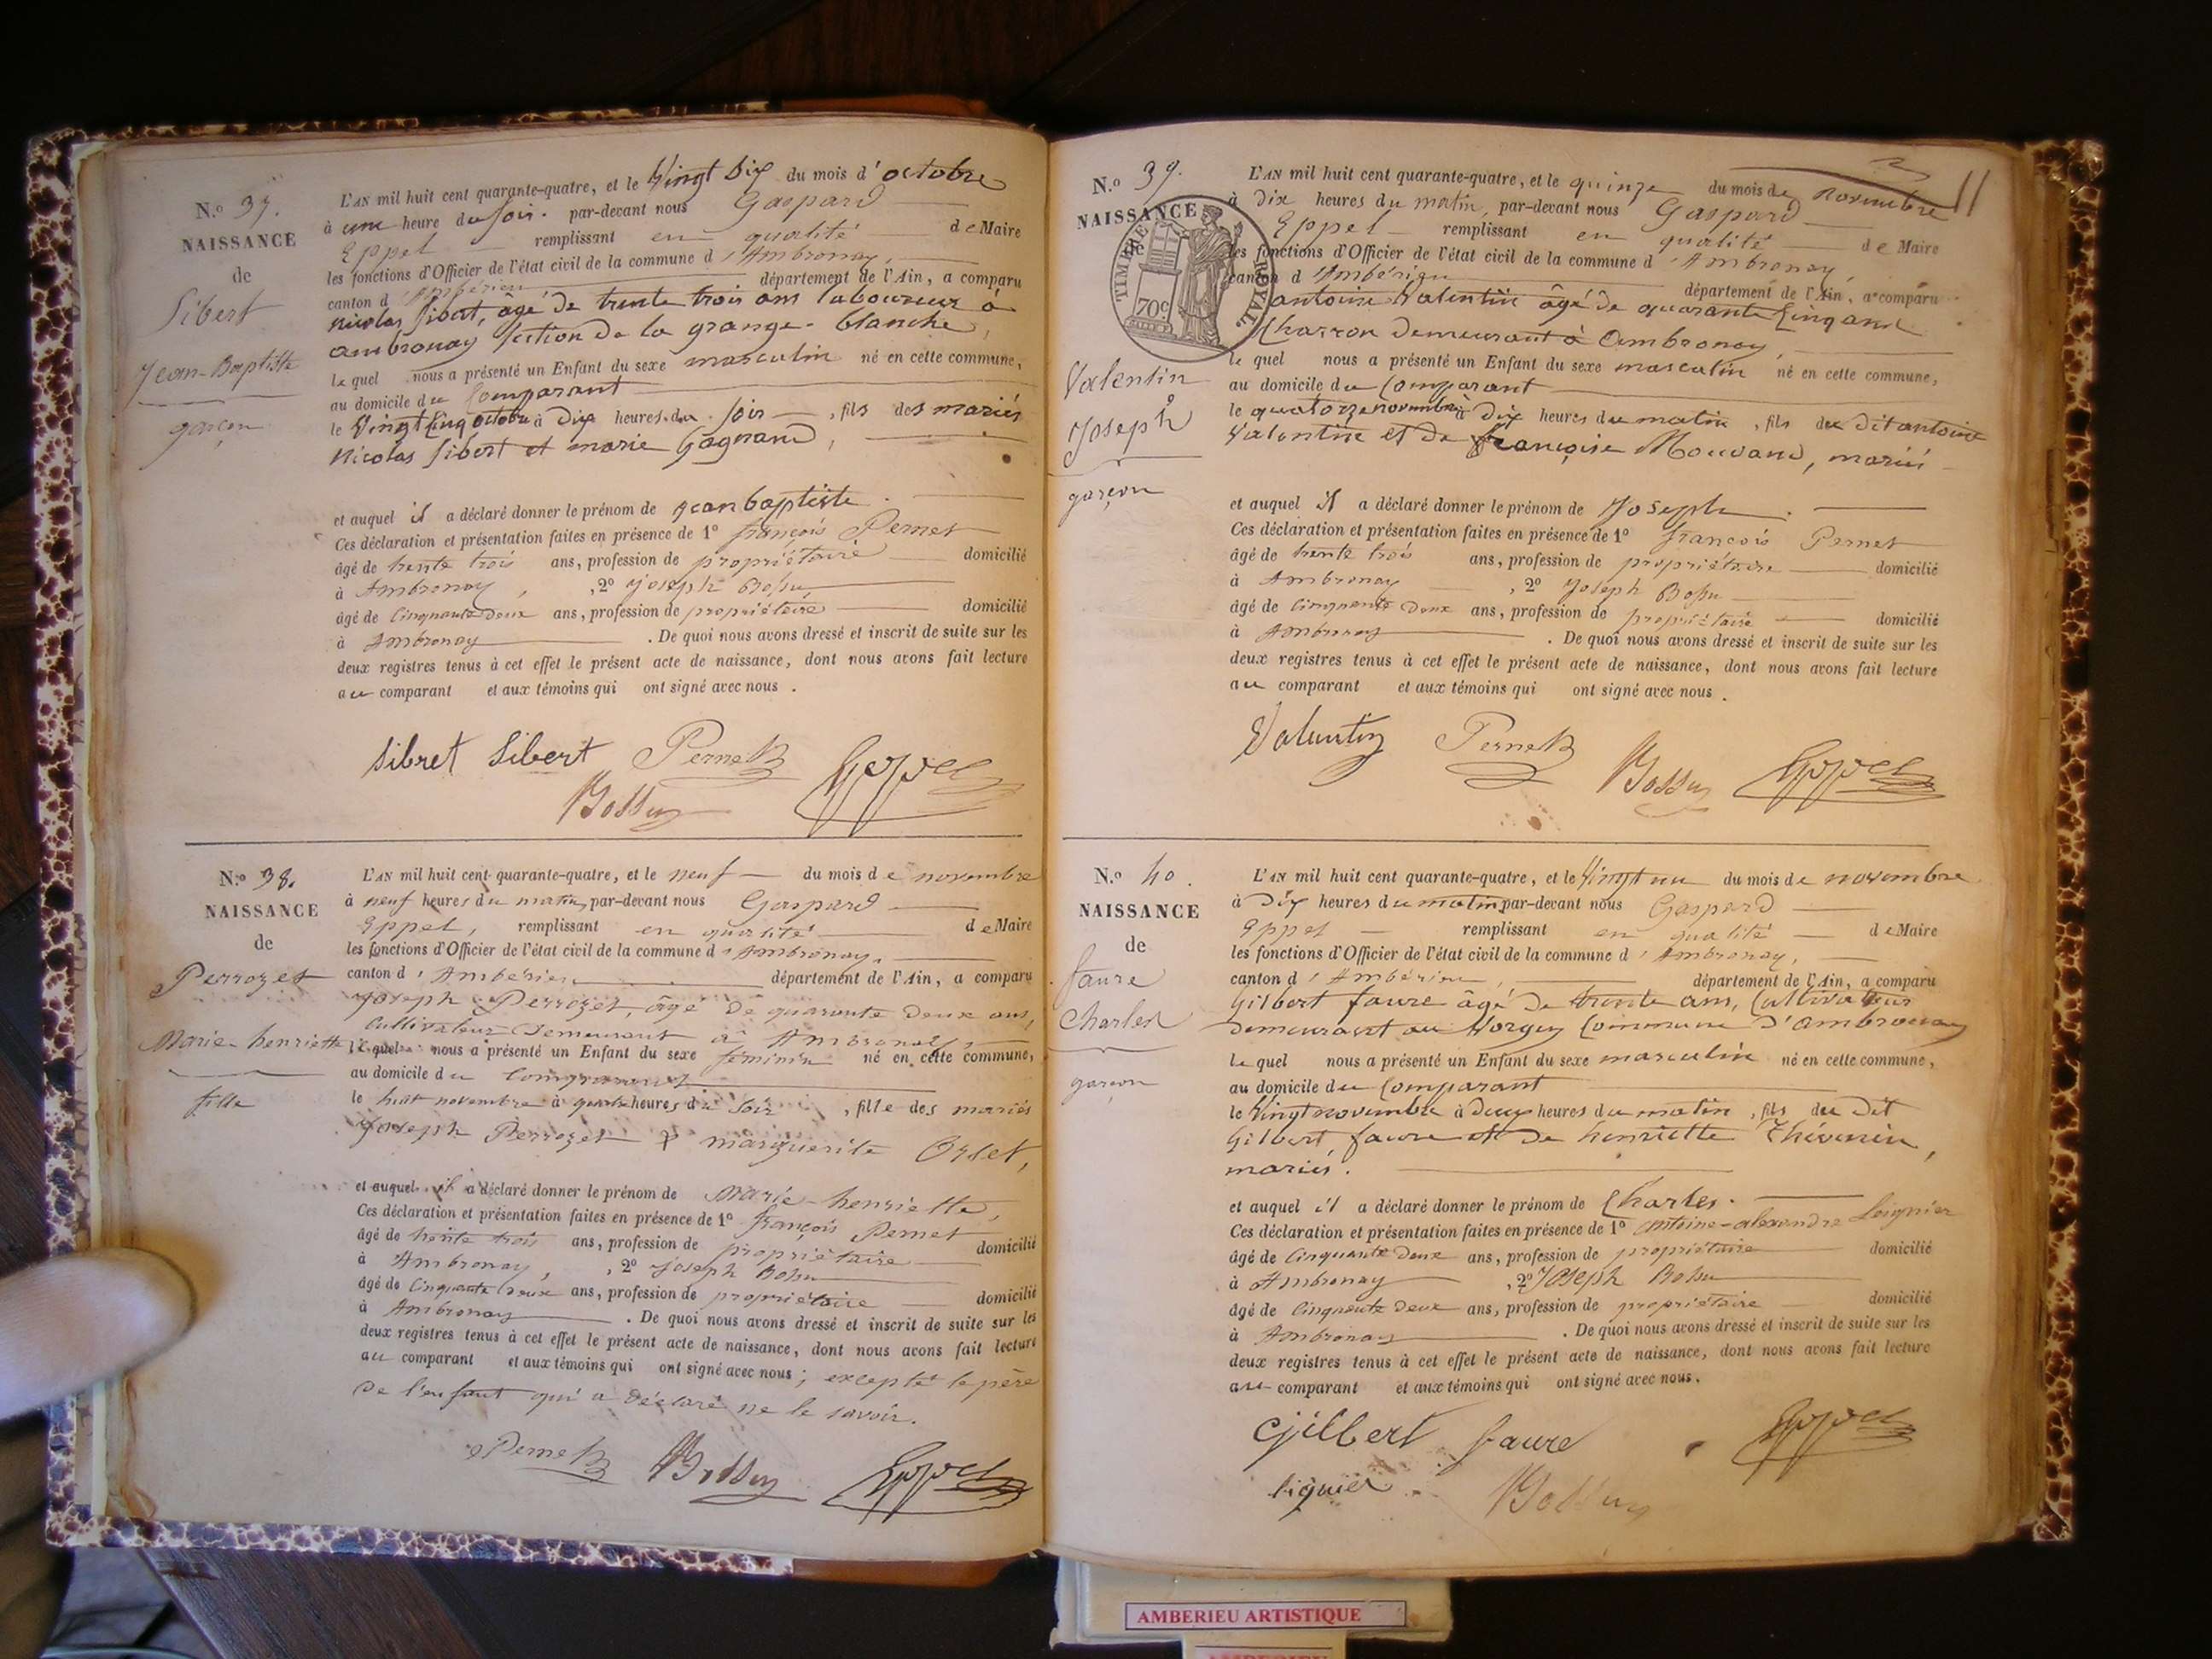 N.o 37.
NAISSANCE
de
Sibert
Jean-Baptiste
garçon
L'AN mil huit cent quarante-quatre, et le Vingt Six du mois d'octobre
à une heure du soir. par-devant nous Gaspard
Eppel remplissant en qualité de Maire
les fonctions d'Officier de l'état civil de la commune d'Ambronay,
canton d'Ambérieu département de l'Ain, a comparu
nicolas Sibert, âgé de trente trois ans laboureur à
ambronay section de la grange-blanche,
le quel nous a présenté un Enfant du sexe masculin né en cette commune,
au domicile du Comparant
le Vingt Cinq octobre à Dix heures du soir, fils des mariés
Nicolas Sibert et marie Gagnand,
et auquel il a déclaré donner le prénom de jean baptiste.
Ces déclaration et présentation faites en présence de 1o françois Pernet
âgé de trente trois ans, profession de propriétaire domicilié
à Ambronay, 2o Joseph Bossu,
âgé de Cinquante Deux ans, profession de propriétaire domicilié
à Ambronay. De quoi nous avons dressé et inscrit de suite sur les
deux registres tenus à cet effet le présent acte de naissance, dont nous avons fait lecture
au comparant et aux témoins qui ont signé avec nous.
Sibret Sibert Pernet
Bossu Eppel
N.o 38.
NAISSANCE
de
Perrozet
Marie-henriette
fille
L'AN mil huit cent quarante-quatre, et le neuf du mois de novembre
à neuf heures du matin, par-devant nous Gaspard
Eppel, remplissant en qualité de Maire
les fonctions d'Officier de l'état civil de la commune d'Ambronay,
canton d'Ambérieu département de l'Ain, a comparu
Joseph Perrozet, âgé de quarante deux ans,
Cultivateur Demeurant à Ambronay,
lequel nous a présenté un Enfant du sexe féminin né en cette commune,
au domicile du Comparant
le huit novembre à quatre heures du Soir, fille des mariés
Joseph Perrozet & marguerite Orset,
et auquel il a déclaré donner le prénom de Marie-henriette,
Ces déclaration et présentation faites en présence de 1o françois Pernet
âgé de trente trois ans, profession de propriétaire domicilié
à Ambronay, 2o Joseph Bossu
âgé de Cinquante Deux ans, profession de propriétaire domicilié
à Ambronay. De quoi nous avons dressé et inscrit de suite sur les
deux registres tenus à cet effet le présent acte de naissance, dont nous avons fait lecture
au comparant et aux témoins qui ont signé avec nous; excepté le père
De l'enfant qui a déclaré ne le savoir.
Pernet Bossu Eppel
11
N.o 39.
NAISSANCE
de
TIMBRE ROYAL
70c
Valentin
Joseph
garçon
L'AN mil huit cent quarante-quatre, et le quinze du mois de novembre
à dix heures du matin, par-devant nous Gaspard
Eppel remplissant en qualité de Maire
les fonctions d'Officier de l'état civil de la commune d'Ambronay,
canton d'Ambérieu département de l'Ain, a comparu
antoine Valentin âgé de quarante Cinq ans
Charron demeurant à Ambronay,
le quel nous a présenté un Enfant du sexe masculin né en cette commune,
au domicile du Comparant
le quatorze novembre à dix heures du matin, fils du Dit antoine
Valentin et de françoise Mouvand, mariés
et auquel il a déclaré donner le prénom de Joseph.
Ces déclaration et présentation faites en présence de 1o françois Pernet
âgé de trente trois ans, profession de propriétaire domicilié
à Ambronay, 2o Joseph Bossu
âgé de Cinquante Deux ans, profession de propriétaire domicilié
à Ambronay. De quoi nous avons dressé et inscrit de suite sur les
deux registres tenus à cet effet le présent acte de naissance, dont nous avons fait lecture
au comparant et aux témoins qui ont signé avec nous.
Valentin Pernet
Bossu Eppel
N.o 40.
NAISSANCE
de
faure
Charles
garçon
L'AN mil huit cent quarante-quatre, et le Vingt un du mois de novembre
à Dix heures du matin, par-devant nous Gaspard
Eppel remplissant en qualité de Maire
les fonctions d'Officier de l'état civil de la commune d'Ambronay,
canton d'Ambérieu, département de l'Ain, a comparu
Gilbert faure âgé de trente ans, Cultivateur
demeurant au Vorgey Commune d'ambronay
le quel nous a présenté un Enfant du sexe masculin né en cette commune,
au domicile du Comparant
le Vingt novembre à deux heures du matin, fils du Dit
Gilbert faure et de henriette Thévenin,
mariés.
et auquel il a déclaré donner le prénom de Charles.
Ces déclaration et présentation faites en présence de 1o Antoine-alexandre Leignier
âgé de Cinquante Deux ans, profession de propriétaire domicilié
à Ambronay, 2o Joseph Bossu
âgé de Cinquante Deux ans, profession de propriétaire domicilié
à Ambronay. De quoi nous avons dressé et inscrit de suite sur les
deux registres tenus à cet effet le présent acte de naissance, dont nous avons fait lecture
au comparant et aux témoins qui ont signé avec nous.
Gilbert faure Eppel
liguier Bossu
AMBERIEU ARTISTIQUE
AMBERIEU